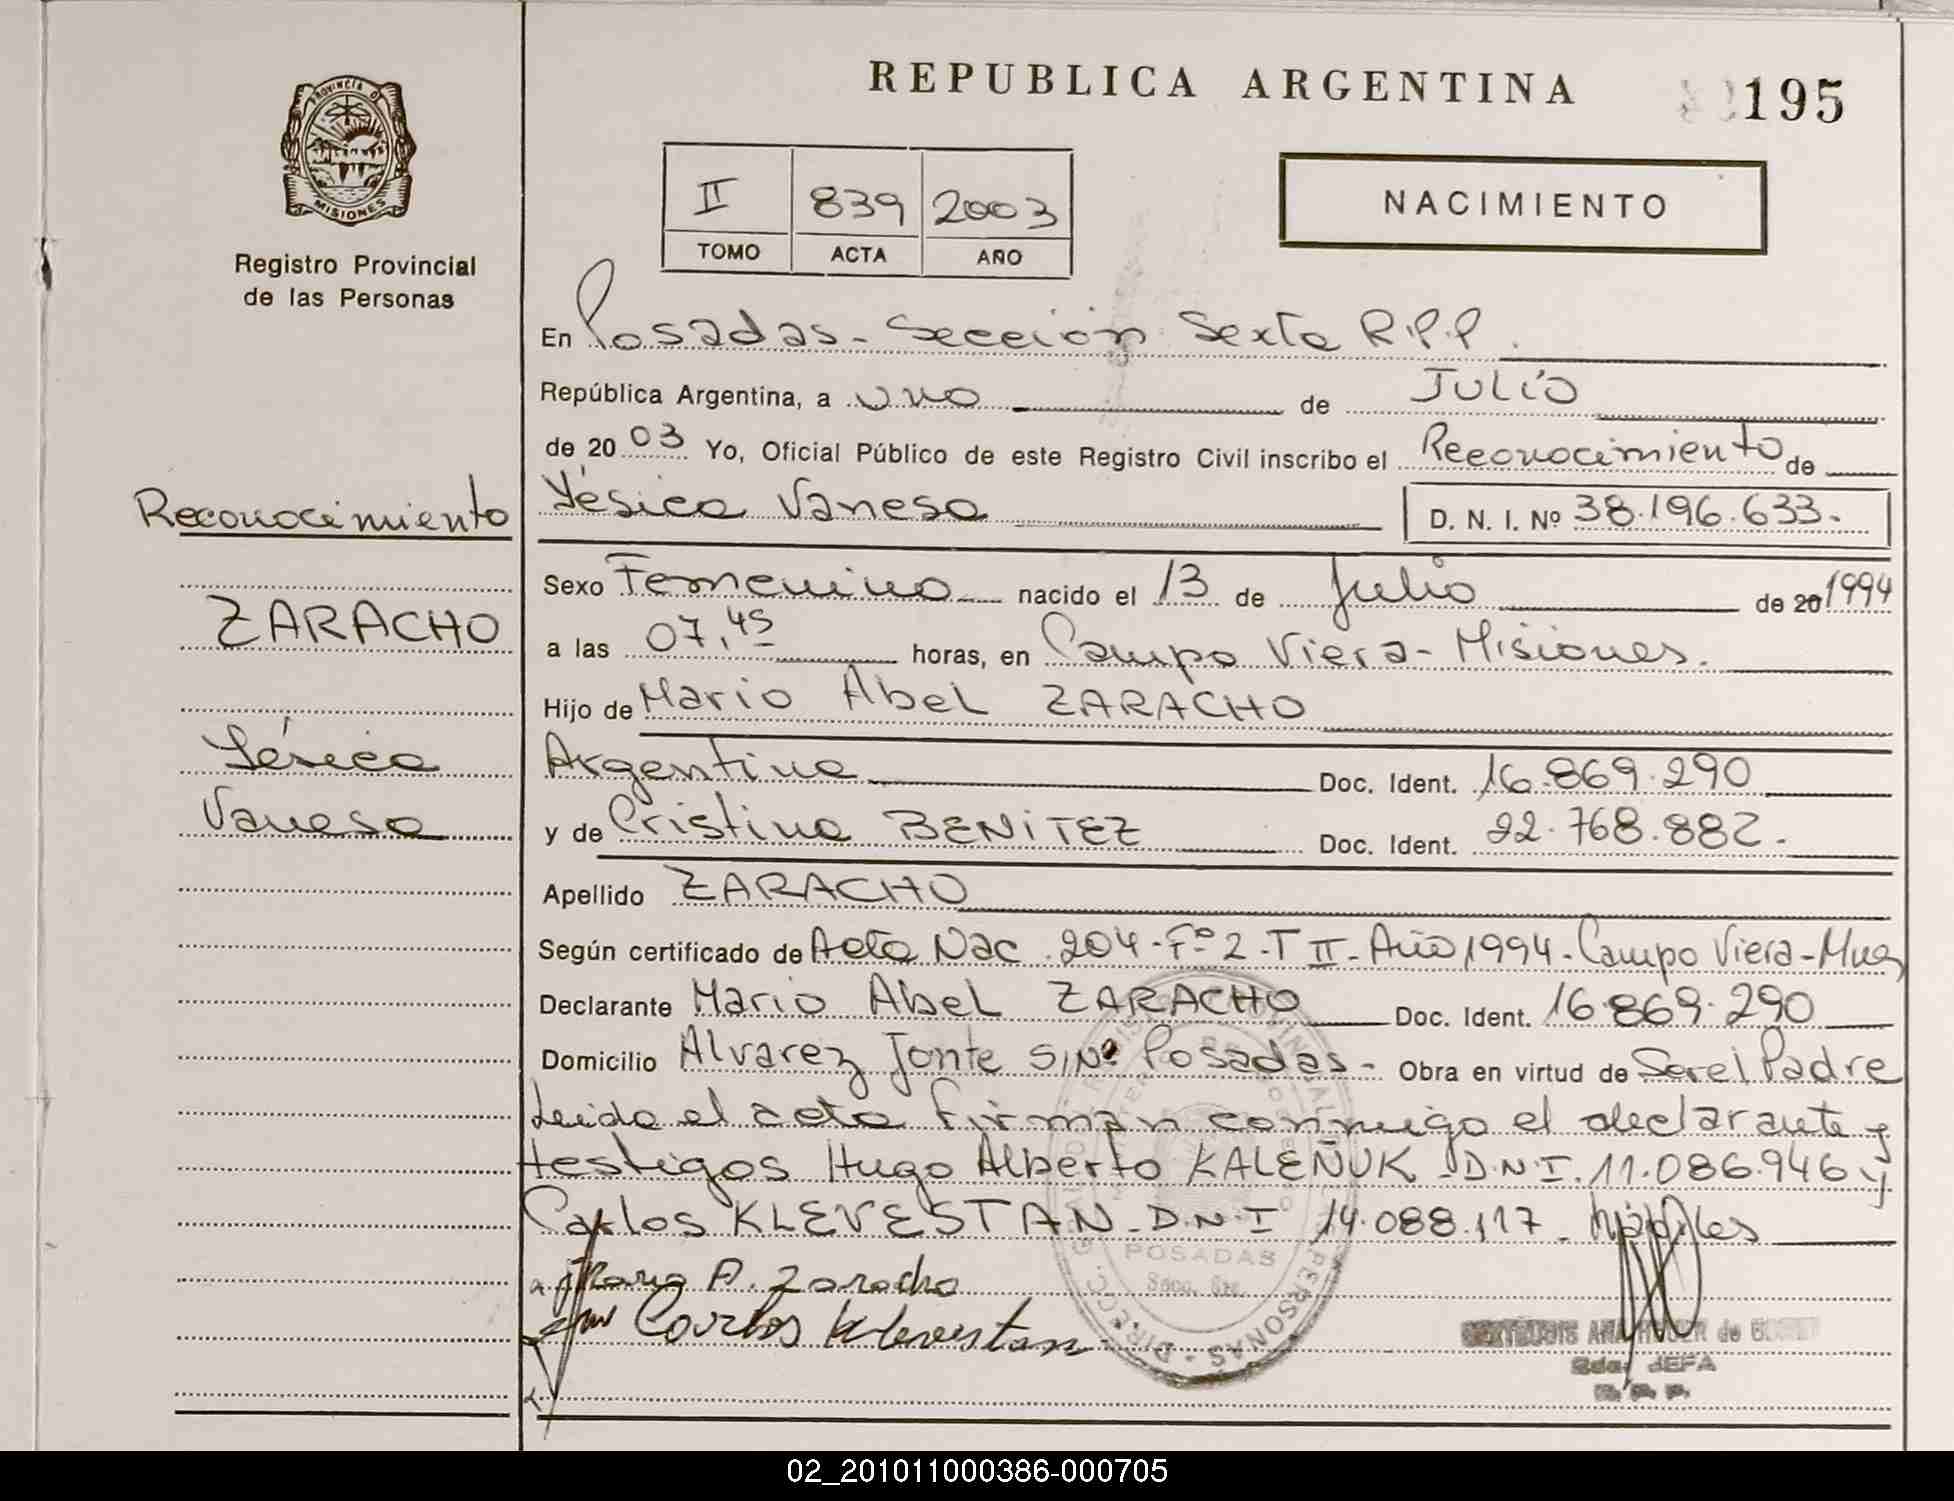 REPUBLICA ARGENTINA
195
PROVINCIA DE
MISIONES
Registro Provincial
de las Personas
II 839 2003
TOMO ACTA AÑO
NACIMIENTO
En Posadas - Sección Sexta R.P.P.
República Argentina, a uno de Julio
de 2003 Yo, Oficial Público de este Registro Civil inscribo el Reconocimiento de
Yésica Vanesa D. N. I. Nº 38.196.633.-
Sexo Femenino nacido el 13 de Julio de 20 1994
a las 07,45 horas, en Campo Viera - Misiones.
Hijo de Mario Abel ZARACHO
Argentina Doc. Ident. 16.869.290
y de Cristina BENITEZ Doc. Ident. 22.768.882.-
Apellido ZARACHO
Según certificado de Acta Nac. 204 - Fº 2 - T II - Año 1994 - Campo Viera - Mnes
Declarante Mario Abel ZARACHO Doc. Ident. 16.869.290
Domicilio Alvarez Jonte S/Nº Posadas - Obra en virtud de Ser el Padre
Leida el acta firman conmigo el declarante y
testigos Hugo Alberto KALEÑUK - D.N.I. 11.086.946 y
Carlos KLEVESTAN - D.N.I 14.088.117 -
Mario A. Zaracho
Carlos Klevestan
Reconocimiento
ZARACHO
Yésica
Vanesa
POSADAS
Secc. 6ta.
PERSONAS - DIRECC
JEFA
02_201011000386-000705